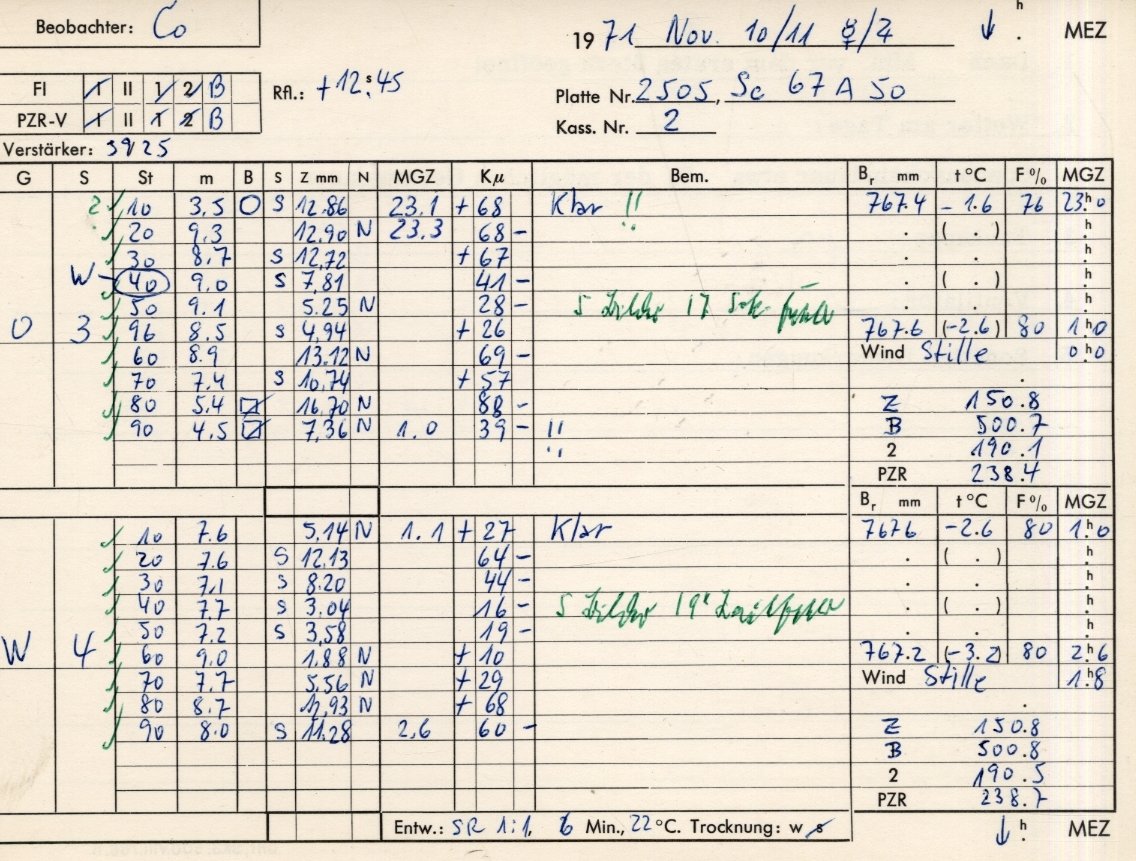 h
Beobachter: Co
1971 Nov. 10/11 ☿/♃ ↓ . MEZ
FI I II 1 2 B
Rfl.: +12.s45
Platte Nr. 2505, Sc 67 A 50
PZR-V I II 1 2 B
Kass. Nr. 2
Verstärker: 3925
G S St m B S Z mm N MGZ Kμ Bem. Br mm t°C F% MGZ
2 10 3.5 O S 12.86 23.1 + 68 Klar !! 767.4 -1.6 76 23h0
20 9.3 12.90 N 23.3 68 - . ( . ) h
30 8.7 S 12.72 + 67 . . h
W 40 9.0 S 7.81 41 - . ( . ) h
50 9.1 5.25 N 28 - 5 17 . . h
O 3 96 8.5 S 4.94 + 26 767.6 (-2.6) 80 1h0
60 8.9 13.12 N 69 - Wind Stille 0h0
70 7.4 S 10.74 + 57 .
80 5.4 16.70 N 88 - Z 150.8
90 4.5 7.36 N 1.0 39 - !! B 500.7
2 190.1
PZR 238.4
Br mm t°C F% MGZ
10 7.6 5.14 N 1.1 + 27 Klar 7676 -2.6 80 1h0
20 7.6 S 12.13 64 - . ( . ) h
30 7.1 S 8.20 44 - . . h
40 7.7 S 3.04 16 - 5 19 . ( . ) h
50 7.2 S 3.58 19 - . . h
W 4 60 9.0 1.88 N + 10 767.2 (-3.2) 80 2h6
70 7.7 5.56 N + 29 Wind Stille 1h8
80 8.7 12.93 N + 68 .
90 8.0 S 11.28 2.6 60 - Z 150.8
B 500.8
2 190.5
PZR 238.7
Entw.: SR 1:1, 6 Min., 22°C. Trocknung: w s ↓ h. MEZ